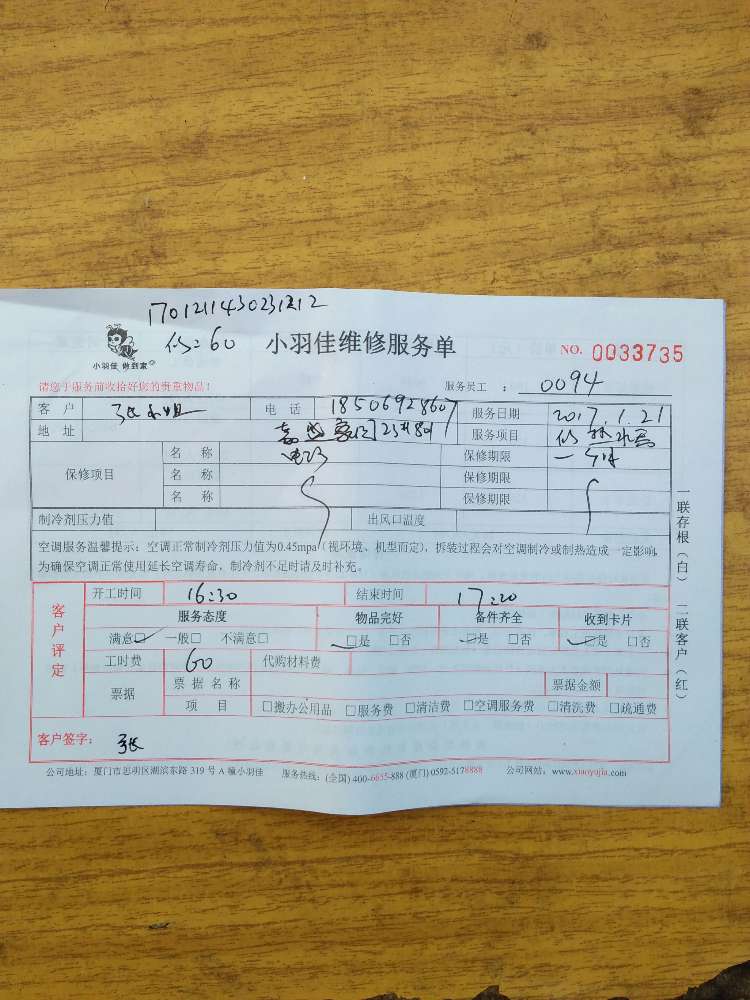 修=60
小羽佳 做到家
小羽佳维修服务单
NO. 0033735
请您于服务前收拾好您的贵重物品!
服务员工 : 0094
客 户 张小姐 电 话 18506928607 服务日期 2017.1.21
地 址 23#801 服务项目 修
保修项目 名 称 电路 保修期限 一个月
名 称 保修期限
名 称 保修期限
制冷剂压力值 出风口温度
空调服务温馨提示:空调正常制冷剂压力值为0.45mpa(视环境、机型而定),拆装过程会对空调制冷或制热造成一定影响,
为确保空调正常使用延长空调寿命,制冷剂不足时请及时补充。
客户评定
开工时间 16:30 结束时间 17:20
服务态度 物品完好 备件齐全 收到卡片
满意□ 一般□ 不满意□ □是 □否 □是 □否 □是 □否
工时费 60 代购材料费
票据 票据名称 票据金额
项 目 □搬办公用品 □服务费 □清洁费 □空调服务费 □清洗费 □疏通费
客户签字: 张
公司地址:厦门市思明区湖滨东路 319 号 A 幢小羽佳 服务热线:(全国) 400-6655-888 (厦门) 0592-5178888 公司网站:www.xiaoyujia.com
一联存根(白) 二联客户(红)